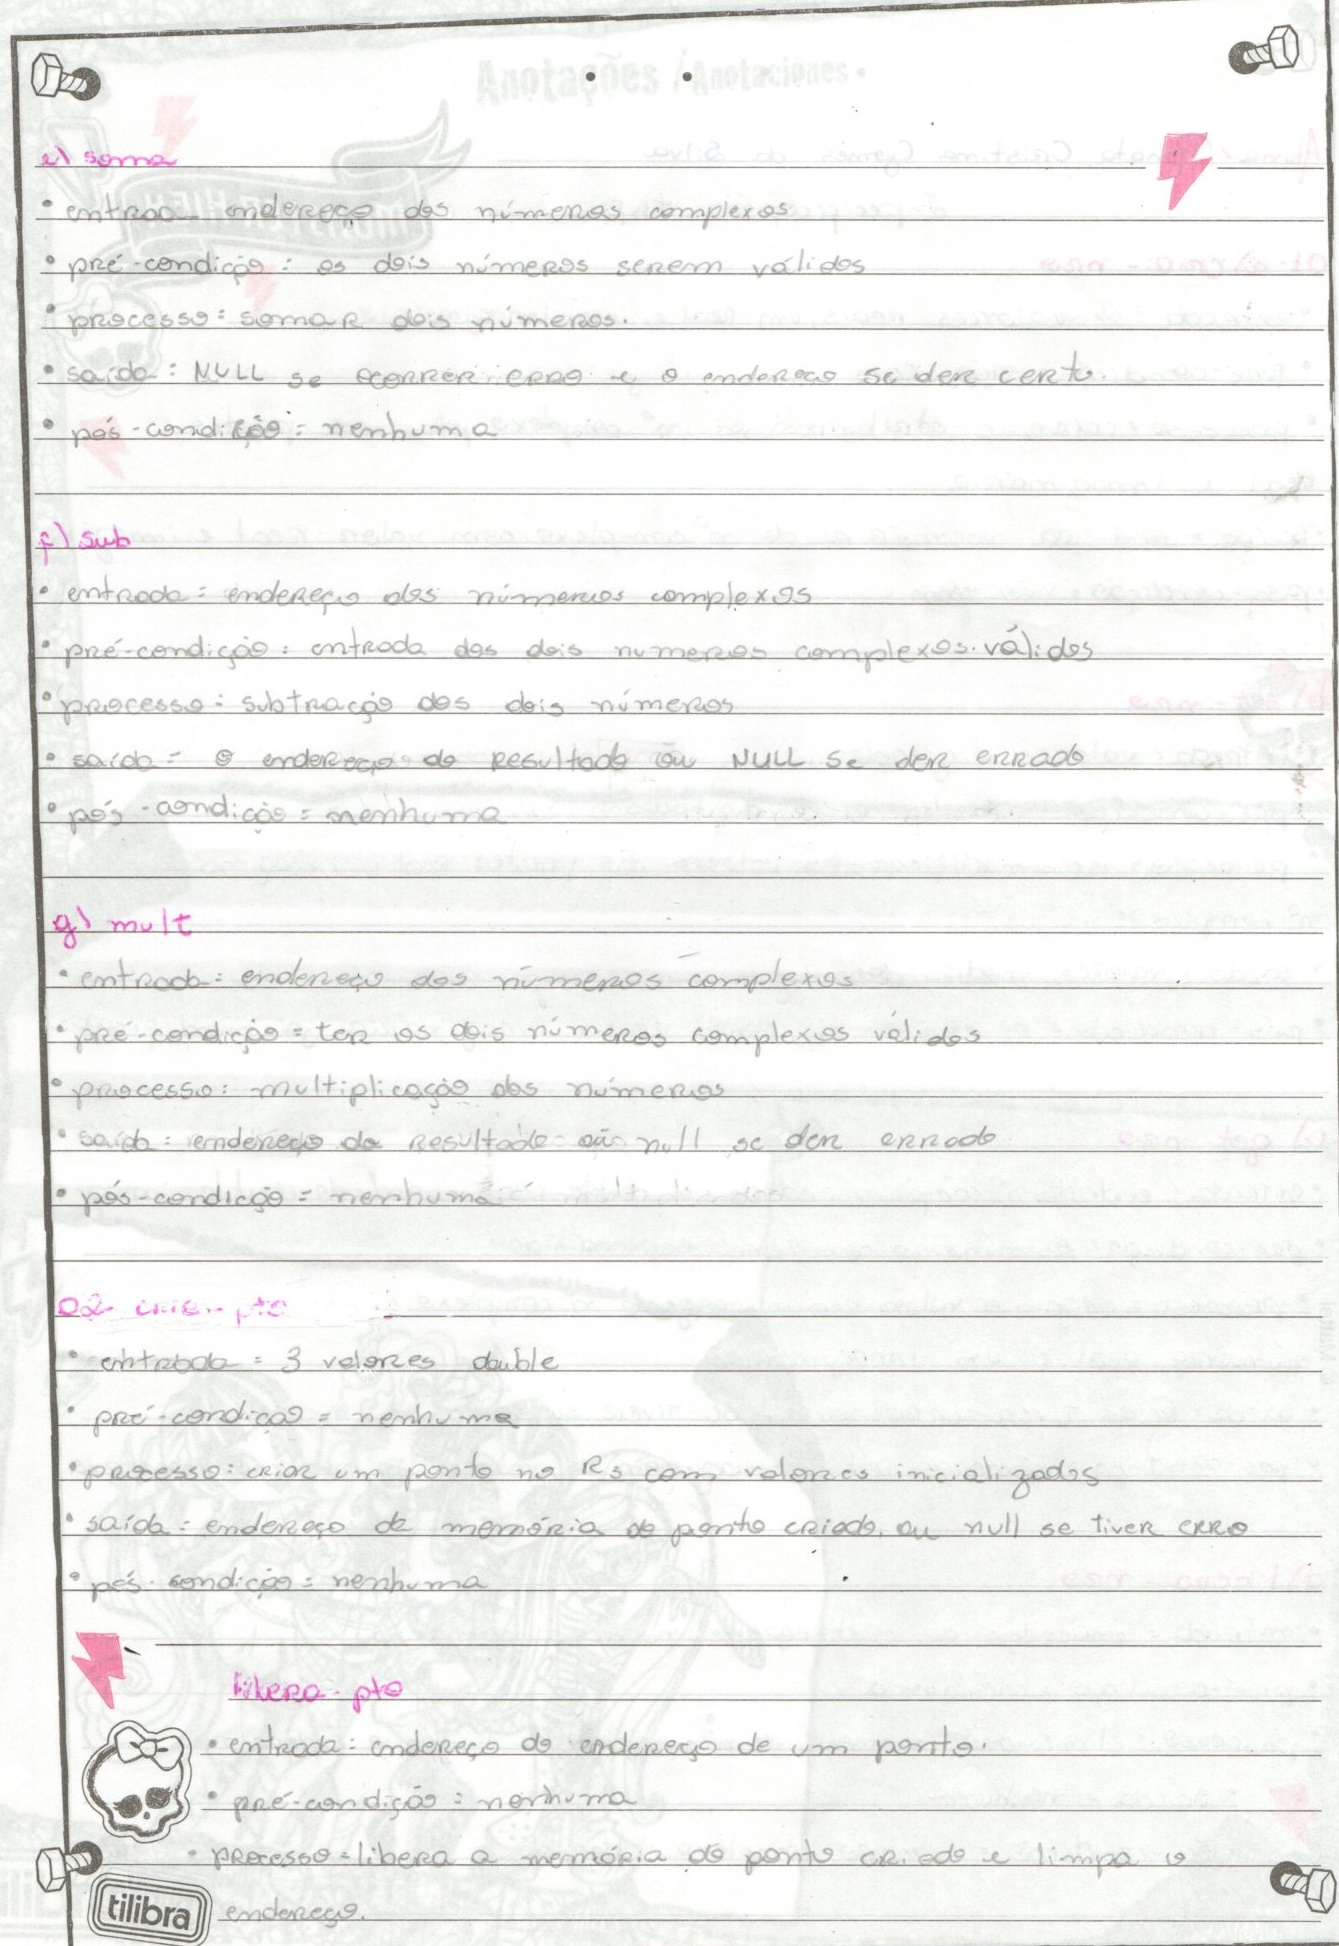 e) soma
• entrada endereço dos números complexos
• pré-condição: os dois números serem válidos
• processo: somar dois números.
• saída: NULL se ocorrer erro e o endereço se der certo.
• pós-condição: nenhuma
f) sub
• entrada: endereço dos números complexos
• pré-condição: entrada dos dois numeros complexos válidos
• processo: subtração dos dois números
• saída: o endereço do resultado ou NULL se der errado
• pós-condição: nenhuma
g) mult
• entrada: endereço dos números complexos
• pré-condição: ter os dois números complexos válidos
• processo: multiplicação dos números
• saída: endereço do resultado ou null se der errado
• pós-condição: nenhuma
02- cria-pto
• entrada: 3 valores double
• pré-condição: nenhuma
• processo: criar um ponto no R3 com valores inicializados
• saída: endereço de memória do ponto criado, ou null se tiver erro
• pós-condição: nenhuma
libera-pto
• entrada: endereço do endereço de um ponto.
• pré-condição: nenhuma
• processo: libera a memória do ponto criado e limpa o
tilibra endereço.